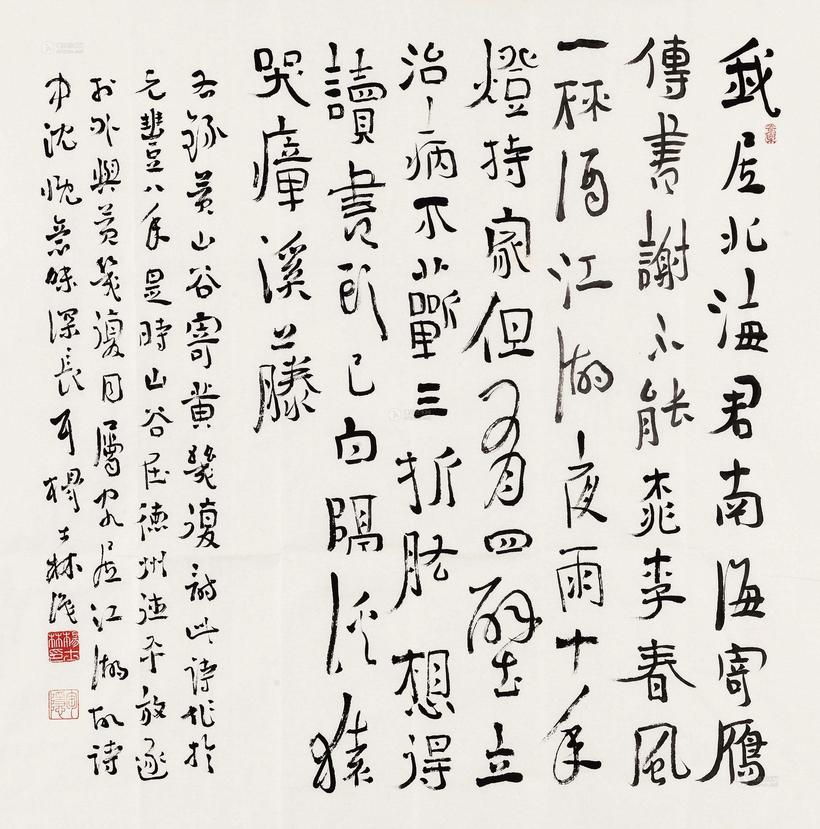 我居北海君南海寄鴈
傳書謝不能桃李春風
一杯酒江湖夜雨十年
燈持家但有四壁立
治病不蘄三折肱想得
讀書頭已白隔溪猿
哭瘴溪藤
右錄黃山谷寄黃幾復詩此詩作於
元豐八年是時山谷居德州德平放逐
於外與黃幾復同屬居江湖故詩
中沈意味深長耳楊士林識